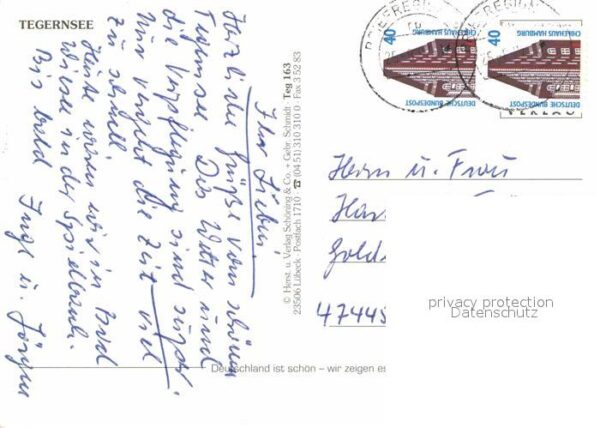 TEGERNSEE
Ihr Lieben!
Herzliche Grüße vom schönen
Tegernsee. Das Wetter und
die Verpflegung sind super.
Nur vergeht die Zeit viel
zu schnell.
Heute waren wir in Bad
Wiessee in der Spielbank.
Bis bald Inge u. Jürgen
© Herst. u. Verlag Schöning & Co. + Gebr. Schmidt · Teg 163
23506 Lübeck · Postfach 1710 · ☎ (04 51) 310 310 0 · Fax 3 52 83
BRIEFREGION
40
CHILEHAUS HAMBURG
DEUTSCHE BUNDESPOST
40
CHILEHAUS HAMBURG
DEUTSCHE BUNDESPOST
Herrn u. Frau
Han
Gold
47445
privacy protection
Datenschutz
Deutschland ist schön – wir zeigen es